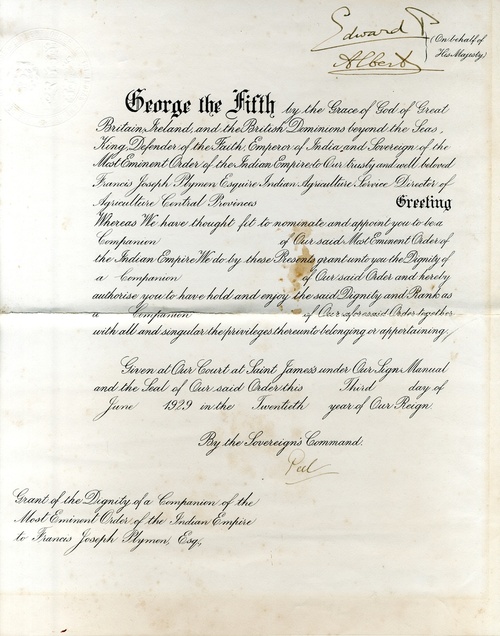 Edward P.
Albert
(On behalf of
His Majesty)
George the Fifth by the Grace of God of Great
Britain, Ireland, and the British Dominions beyond the Seas,
King, Defender of the Faith, Emperor of India and Sovereign of the
Most Eminent Order of the Indian Empire to Our trusty and well-beloved
Francis Joseph Plymen Esquire Indian Agriculture Service Director of
Agriculture Central Provinces Greeting
Whereas We have thought fit to nominate and appoint you to be a
Companion of Our said Most Eminent Order of
the Indian Empire We do by these Presents grant unto you the Dignity of
a Companion of Our said Order and hereby
authorise you to have hold and enjoy the said Dignity and Rank as
a Companion of Our aforesaid Order together
with all and singular the privileges thereunto belonging or appertaining,
Given at Our Court at Saint James's under Our Sign Manual
and the Seal of Our said Order this Third day of
June 1929 in the Twentieth year of Our Reign.
By the Sovereign's Command.
Peel
Grant of the Dignity of a Companion of the
Most Eminent Order of the Indian Empire
to Francis Joseph Plymen, Esq.,